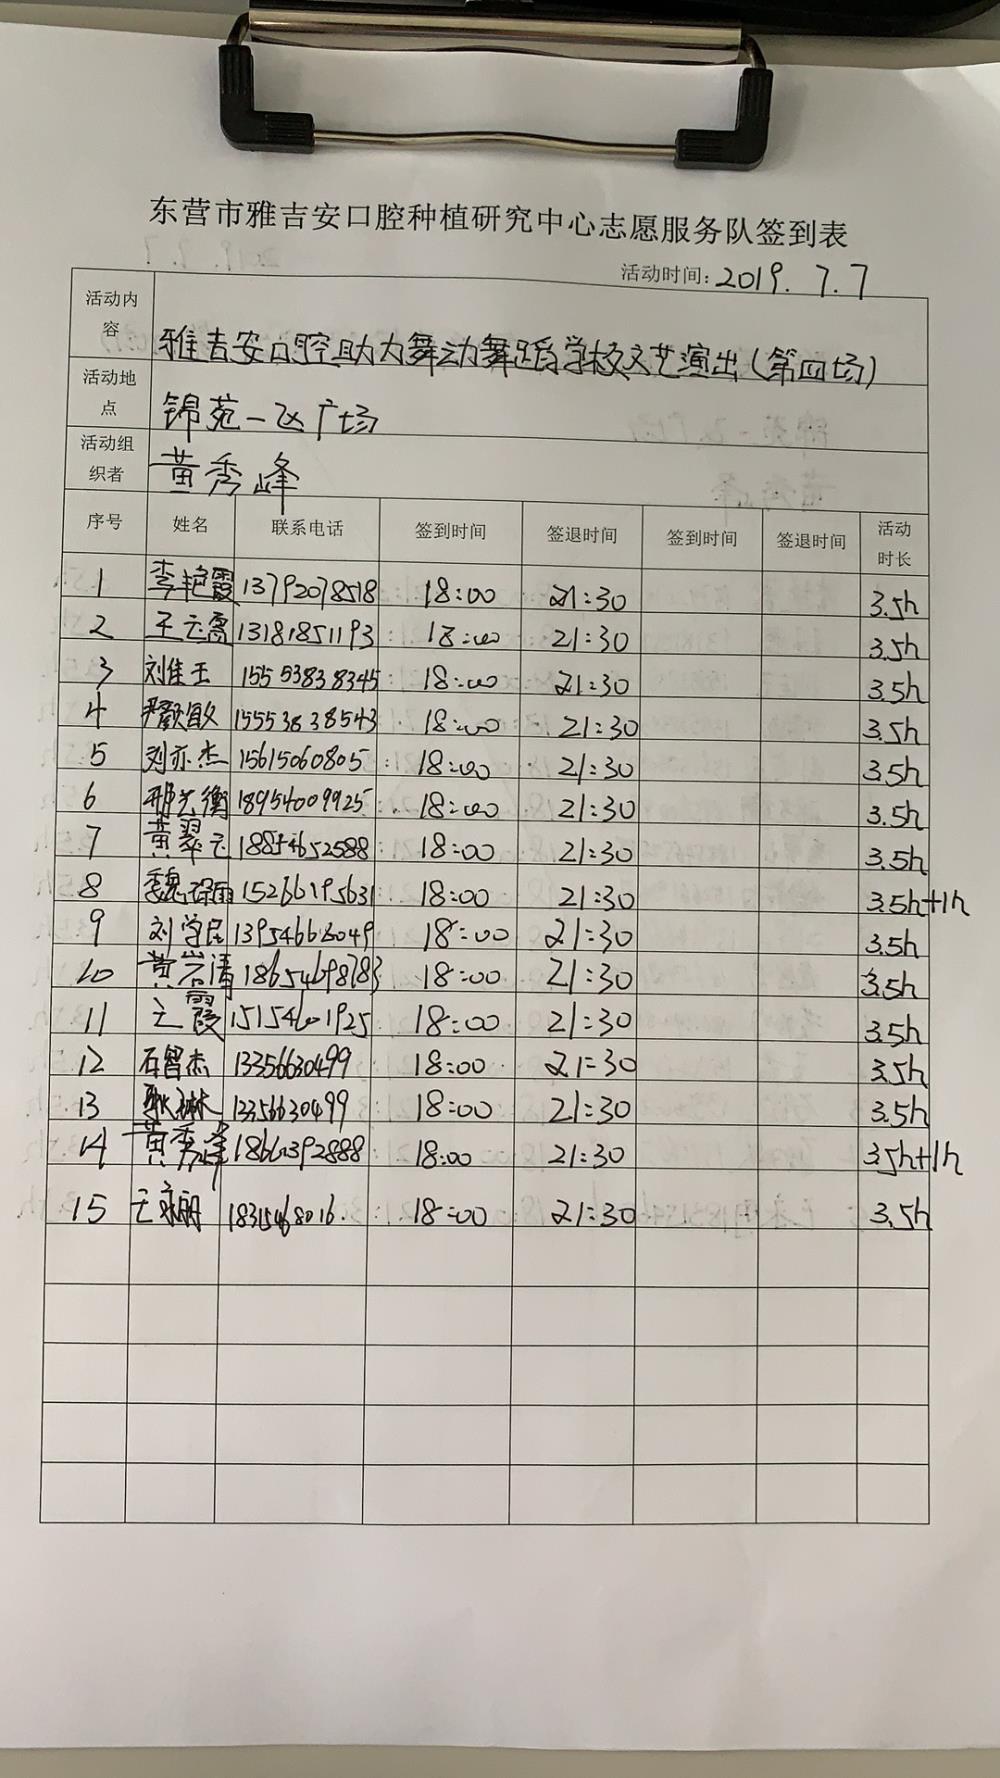 东营市雅吉安口腔种植研究中心志愿服务队签到表
活动时间: 2019.7.7
活动内容 雅吉安口腔助力舞动舞蹈学校文艺演出(第四场)
活动地点 锦苑一区广场
活动组织者 黄秀峰
序号 姓名 联系电话 签到时间 签退时间 签到时间 签退时间 活动时长
1 李艳霞 13792078518 18:00 21:30 3.5h
2 王云霞 13181851193 18:00 21:30 3.5h
3 刘佳玉 15553838345 18:00 21:30 3.5h
4 15553838543 18:00 21:30 3.5h
5 刘亦杰 15615060805 18:00 21:30 3.5h
6 18954009925 18:00 21:30 3.5h
7 黄翠云 18854652588 18:00 21:30 3.5h
8 15266195631 18:00 21:30 3.5h+1h
9 刘学民 13954663049 18:00 21:30 3.5h
10 黄岩清 18654698783 18:00 21:30 3.5h
11 王霞 15154601925 18:00 21:30 3.5h
12 石智杰 13356630499 18:00 21:30 3.5h
13 耿琳 13356630499 18:00 21:30 3.5h
14 黄秀峰 18661392888 18:00 21:30 3.5h+1h
15 18315468016 18:00 21:30 3.5h